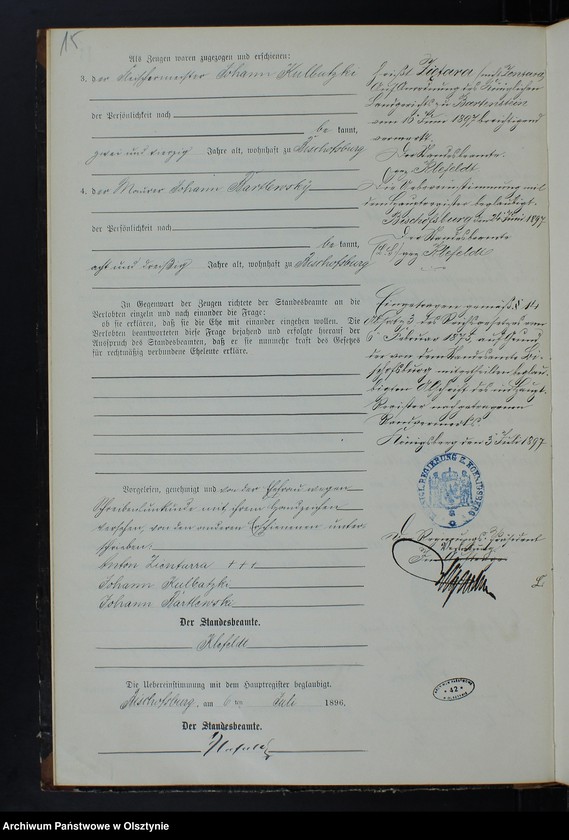 15
Als Zeugen waren zugezogen und erschienen:
3. der Johann Kulbatzki
der Persönlichkeit nach
be kannt,
zwei und vierzig Jahre alt, wohnhaft zu Bischofsburg
4. der Maurer Johann Barklewsky
der Persönlichkeit nach
be kannt,
acht und dreißig Jahre alt, wohnhaft zu Bischofsburg
In Gegenwart der Zeugen richtete der Standesbeamte an die
Verlobten einzeln und nach einander die Frage:
ob sie erklären, daß sie die Ehe mit einander eingehen wollen. Die
Verlobten beantworteten diese Frage bejahend und erfolgte hierauf der
Ausspruch des Standesbeamten, daß er sie nunmehr kraft des Gesetzes
für rechtmäßig verbundene Eheleute erkläre.
Vorgelesen, genehmigt und von der Ehefrau wegen
Schreibensunkunde mit ihrem Handzeichen
versehen, von den anderen Erschienenen unter-
schrieben.
Anton +++
Johann Kulbatzki
Johann
Der Standesbeamte.
Klefeldt
Die Uebereinstimmung mit dem Hauptregister beglaubigt.
Bischofsburg, am 6 ten Juli 1896.
Der Standesbeamte.
Klefeldt
heißt Pietzara
Auf Anordnung des Königlichen
Landgerichts zu Bartenstein
vom 1897 berichtigend
vermerkt.
Der Standesbeamte.
gez. Klefeldt.
Die Uebereinstimmung mit
dem Hauptregister beglaubigt.
Bischofsburg den 24 Juni 1897
Der Standesbeamte
(L.S.) gez. Klefeldt
Eingetragen gemäß § 14
Absatz 3 des Reichsgesetzes vom
6 Februar 1875, auf Grund
der von dem Standesamte Bi-
schofsburg mitgetheilten beglau-
bigten Abschrift des im Haupt-
Register nachgetragenen
Randvermerks.
Königsberg den 3 Juli 1897
KGL. REGIERUNG Z. KOENIGSBERG
Der Regierungs Präsident
42
Archiwum Państwowe w Olsztynie